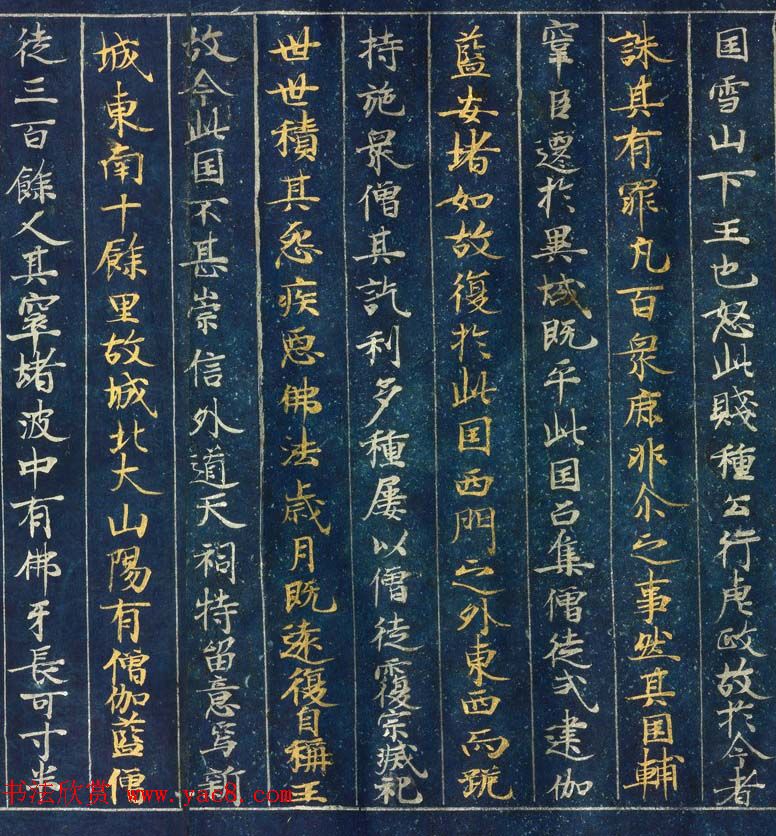 囯雪山下王也怒此賤種公行虐政故於今者
誅其有罪凡百衆庶非尒之事然其囯輔
宰臣遷於異域既平此囯召集僧徒式建伽
藍安堵如故復於此囯西門之外東西而跪
持施衆僧其訖利多種屢以僧徒覆宗滅祀
世世積其怨疾惡佛法歳月既遠復自稱王
故今此囯不甚崇信外道天祠特留意焉新
城東南十餘里故城北大山陽有僧伽藍僧
徒三百餘人其窣堵波中有佛牙長可寸半
书法欣赏 www.yac8.com